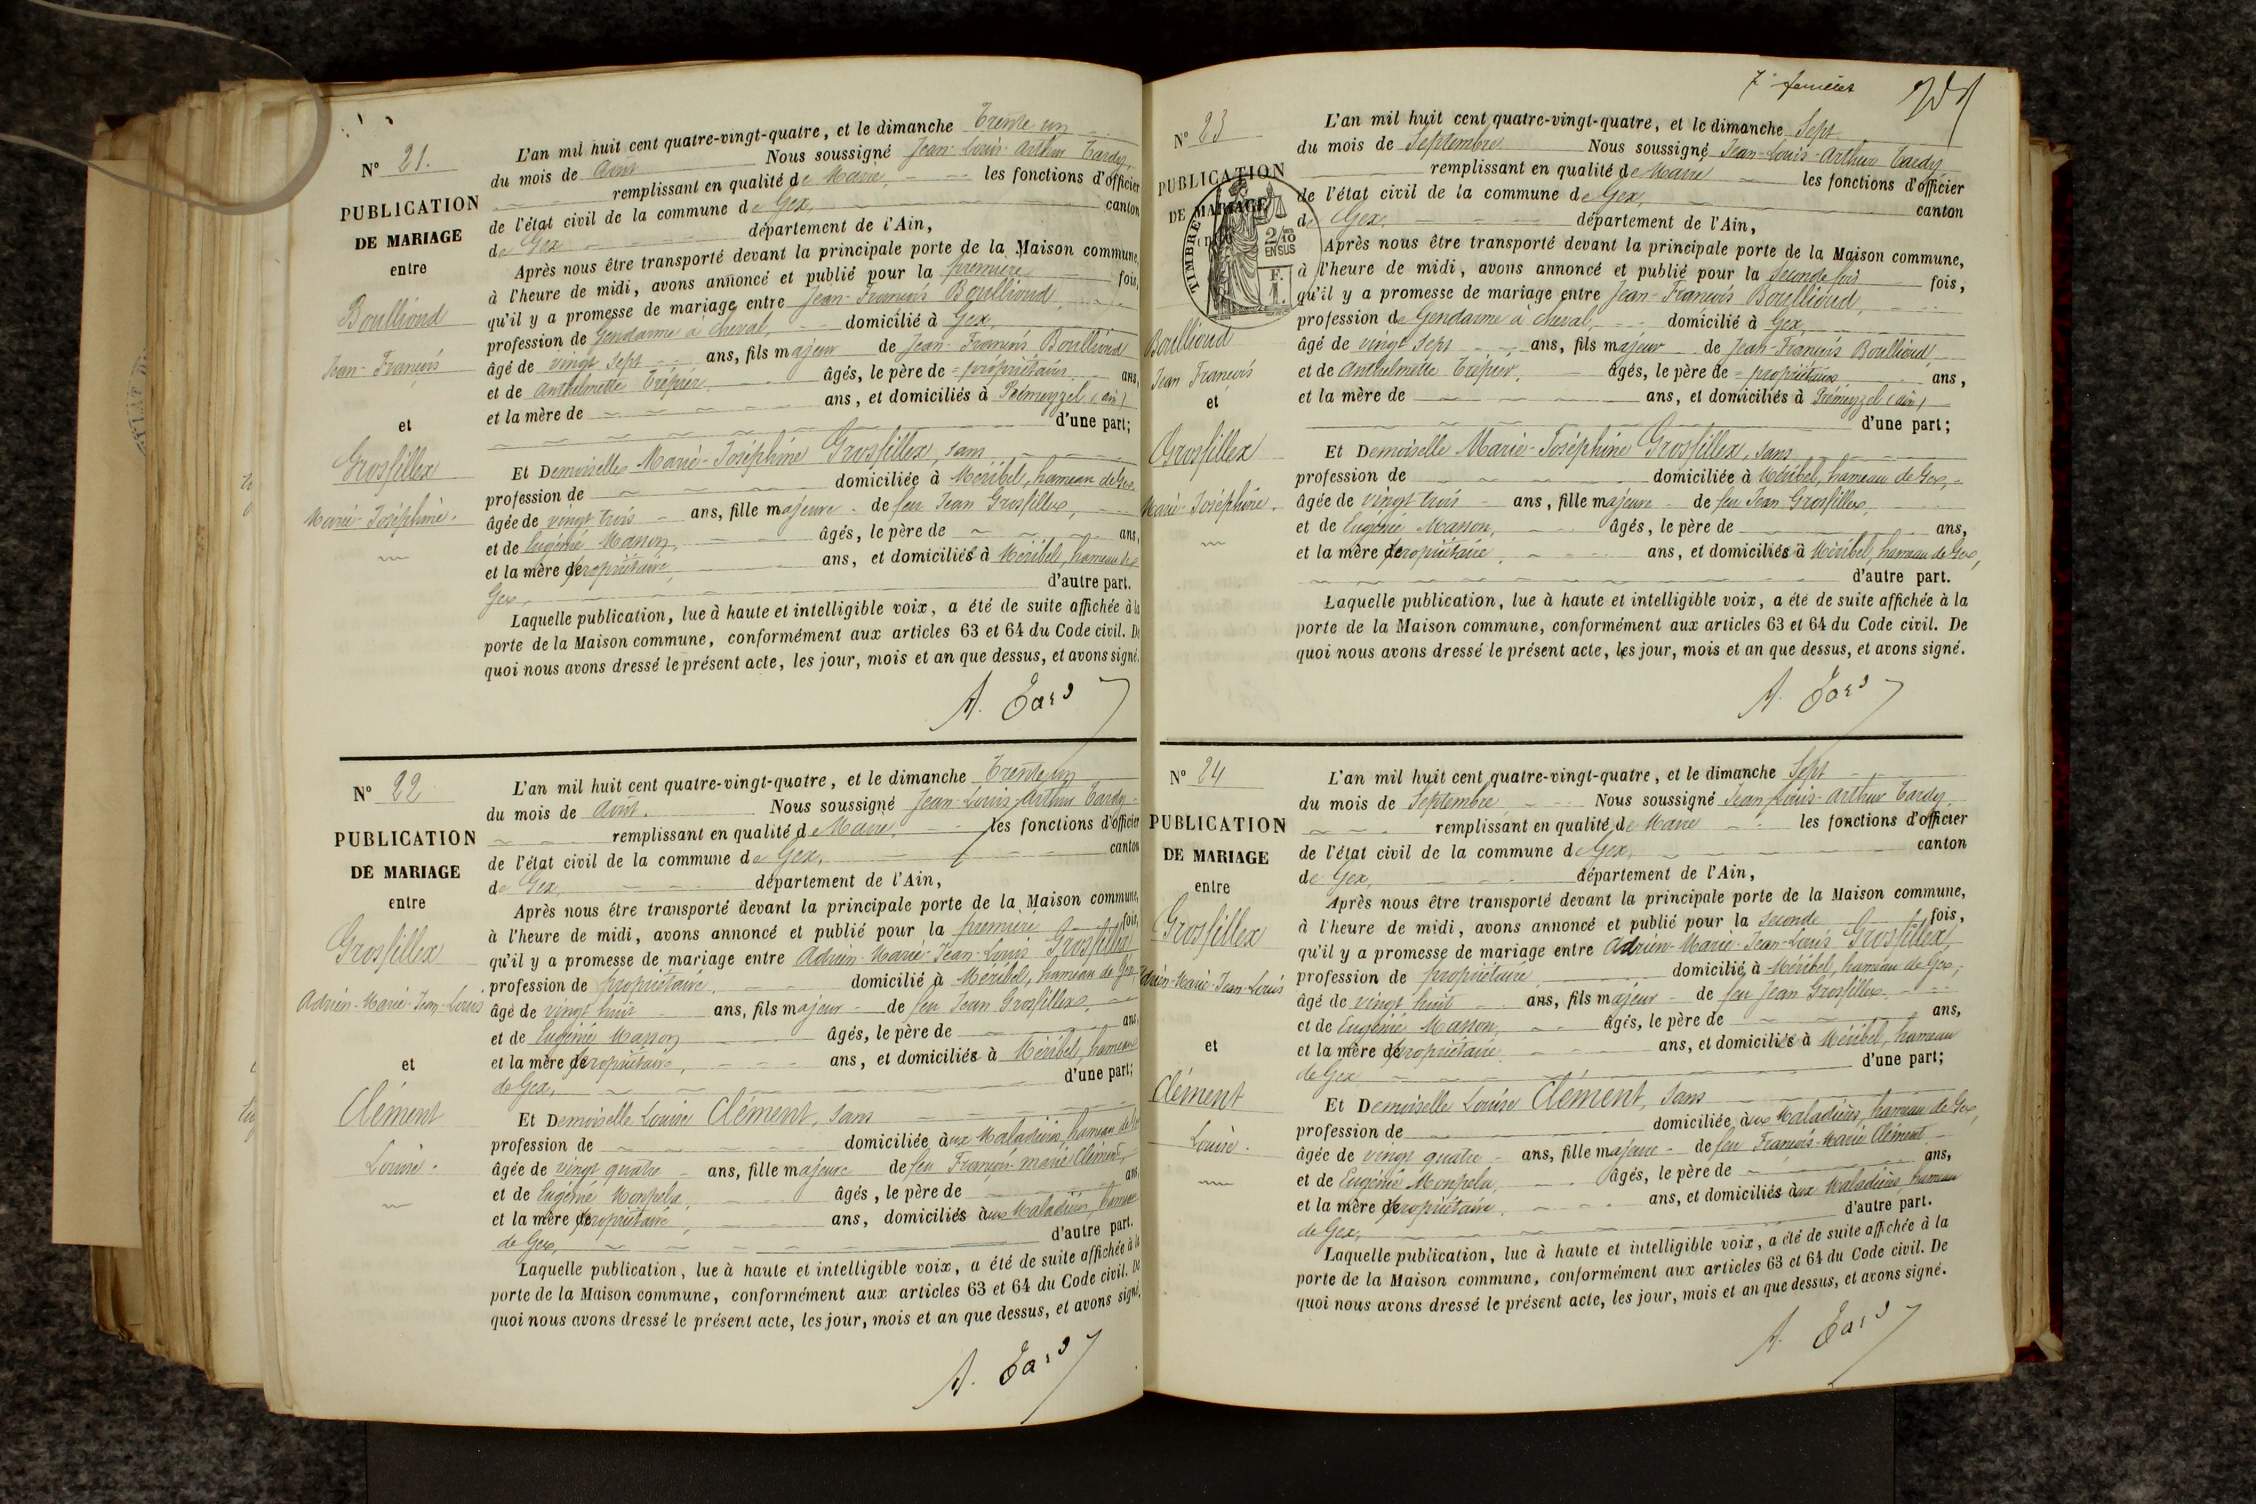 N° 21.
PUBLICATION
DE MARIAGE
entre
Boullioud
Jean-François
et
Grosfillex
Marie-Joséphine.
L'an mil huit cent quatre-vingt-quatre, et le dimanche Trente un
du mois de Août Nous soussigné Jean-Louis-Arthur Tardy,
remplissant en qualité de Maire, les fonctions d'officier
de l'état civil de la commune de Gex, canton
de Gex département de l'Ain,
Après nous être transporté devant la principale porte de la Maison commune,
à l'heure de midi, avons annoncé et publié pour la première fois,
qu'il y a promesse de mariage entre Jean-François Boullioud,
profession de Gendarme à cheval, domicilié à Gex,
âgé de vingt sept ans, fils majeur de Jean-François Boullioud
et de Anthelmette Trépier, âgés, le père de = propriétaires ans,
et la mère de ans, et domiciliés à (ain)
d'une part;
Et Demoiselle Marie-Joséphine Grosfillex, sans
profession de domiciliée à Méribel, hameau de Gex
âgée de vingt trois ans, fille majeure de feu Jean Grosfillex,
et de Eugénie Masson, âgés, le père de ans,
et la mère de propriétaire, ans, et domiciliés à Méribel, hameau de
Gex, d'autre part.
Laquelle publication, lue à haute et intelligible voix, a été de suite affichée à la
porte de la Maison commune, conformément aux articles 63 et 64 du Code civil. De
quoi nous avons dressé le présent acte, les jour, mois et an que dessus, et avons signé.
A. Tardy
N° 22
PUBLICATION
DE MARIAGE
entre
Grosfillex
Adrien-Marie-Jean-Louis
et
Clément
Louise.
L'an mil huit cent quatre-vingt-quatre, et le dimanche Trente un
du mois de Août. Nous soussigné Jean-Louis-Arthur Tardy
remplissant en qualité de Maire, les fonctions d'officier
de l'état civil de la commune de Gex, canton
de Gex département de l'Ain,
Après nous être transporté devant la principale porte de la Maison commune,
à l'heure de midi, avons annoncé et publié pour la première fois,
qu'il y a promesse de mariage entre Adrien-Marie-Jean-Louis Grosfillex
profession de propriétaire, domicilié à Méribel, hameau de Gex,
âgé de vingt huit ans, fils majeur de feu Jean Grosfillex,
et de Eugénie Masson âgés, le père de ans,
et la mère de propriétaire, ans, et domiciliés à Méribel, hameau
de Gex, d'une part;
Et Demoiselle Louise Clément, sans
profession de domiciliée aux Maladières, hameau de Gex
âgée de vingt quatre ans, fille majeure de feu François-Marie Clément,
et de Eugénie Monpela, âgés, le père de ans,
et la mère de propriétaire, ans, domiciliés aux Maladières, hameau
de Gex, d'autre part.
Laquelle publication, lue à haute et intelligible voix, a été de suite affichée à la
porte de la Maison commune, conformément aux articles 63 et 64 du Code civil. De
quoi nous avons dressé le présent acte, les jour, mois et an que dessus, et avons signé.
A. Tardy
7e feuillet
N° 23
PUBLICATION
DE MARIAGE
entre
TIMBRE
2/10
EN SUS
F.
1.
Boullioud
Jean François
et
Grosfillex
Marie-Joséphine.
L'an mil huit cent quatre-vingt-quatre, et le dimanche Sept
du mois de Septembre Nous soussigné Jean-Louis-Arthur Tardy
remplissant en qualité de Maire les fonctions d'officier
de l'état civil de la commune de Gex, canton
de Gex, département de l'Ain,
Après nous être transporté devant la principale porte de la Maison commune,
à l'heure de midi, avons annoncé et publié pour la seconde fois fois,
qu'il y a promesse de mariage entre Jean-François Boullioud,
profession de Gendarme à cheval, domicilié à Gex,
âgé de vingt sept ans, fils majeur de Jean-François Boullioud
et de Anthelmette Trépier, âgés, le père de = propriétaires ans,
et la mère de ans, et domiciliés à Prémeyzel (ain)
d'une part;
Et Demoiselle Marie-Joséphine Grosfillex, sans
profession de domiciliée à Méribel, hameau de Gex,
âgée de vingt trois ans, fille majeure de feu Jean Grosfillex,
et de Eugénie Masson, âgés, le père de ans,
et la mère de propriétaire, ans, et domiciliés à Méribel, hameau de Gex,
d'autre part.
Laquelle publication, lue à haute et intelligible voix, a été de suite affichée à la
porte de la Maison commune, conformément aux articles 63 et 64 du Code civil. De
quoi nous avons dressé le présent acte, les jour, mois et an que dessus, et avons signé.
A. Tardy
N° 24
PUBLICATION
DE MARIAGE
entre
Grosfillex
Adrien-Marie-Jean-Louis
et
Clément
Louise.
L'an mil huit cent quatre-vingt-quatre, et le dimanche Sept
du mois de Septembre Nous soussigné Jean-Louis-Arthur Tardy
remplissant en qualité de Maire les fonctions d'officier
de l'état civil de la commune de Gex, canton
de Gex, département de l'Ain,
Après nous être transporté devant la principale porte de la Maison commune,
à l'heure de midi, avons annoncé et publié pour la seconde fois,
qu'il y a promesse de mariage entre Adrien-Marie-Jean-Louis Grosfillex,
profession de propriétaire domicilié à Méribel, hameau de Gex,
âgé de vingt huit ans, fils majeur de feu Jean Grosfillex,
et de Eugénie Masson, âgés, le père de ans,
et la mère de propriétaire, ans, et domiciliés à Méribel, hameau
de Gex d'une part;
Et Demoiselle Louise Clément, sans
profession de domiciliée aux Maladières, hameau de Gex,
âgée de vingt quatre ans, fille majeure de feu François-Marie Clément
et de Eugénie Monpela, âgés, le père de ans,
et la mère de propriétaire, ans, et domiciliés aux Maladières, hameau
de Gex, d'autre part.
Laquelle publication, lue à haute et intelligible voix, a été de suite affichée à la
porte de la Maison commune, conformément aux articles 63 et 64 du Code civil. De
quoi nous avons dressé le présent acte, les jour, mois et an que dessus, et avons signé.
A. Tardy